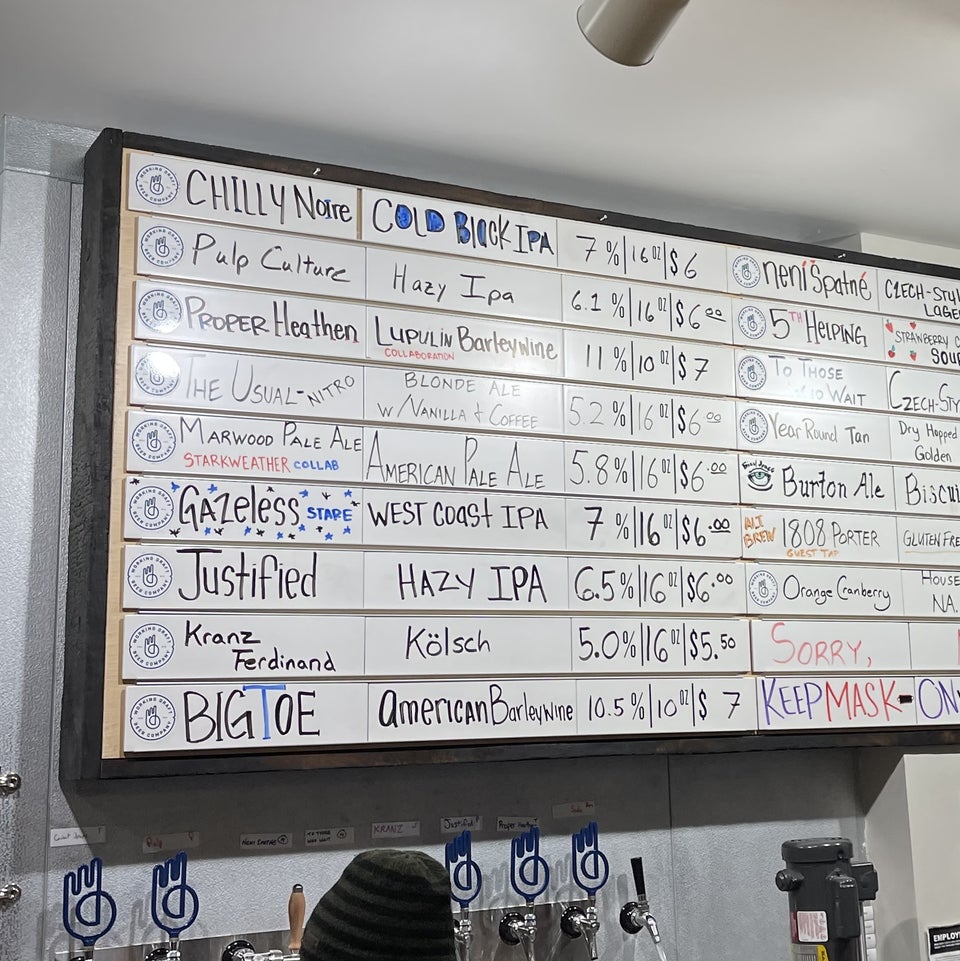 WORKING DRAFT BEER COMPANY
CHILLY Noire COLD BlacK IPA 7 %|16 OZ|$6
Pulp Culture Hazy Ipa 6.1 %|16 OZ|$6 00
PROPER Heathen LUPULIN Barleywine 11 %|10 OZ|$7
COLLABORATION
THE USUAL-NITRO BLONDE ALE W/ VANILLA & COFFEE 5.2 %|16 OZ|$6 00
MARWOOD PALE ALE AMERICAN PALE ALE 5.8%|16 OZ|$6.00
STARKWEATHER COLLAB
GAZeless STARE WEST COAST IPA 7 %|16 OZ|$6.00
Justified HAZY IPA 6.5%|16 OZ|$6.00
Kranz Ferdinand Kölsch 5.0%|16 OZ|$5.50
BIG TOE AmericAN Barleywine 10.5%|10 OZ|$ 7
Není Špatné CZECH-Styl
LAGE
5TH HELPING STRAWBERRY C
SOUR
TO THOSE CZECH-STY
WAIT
Year Round Tan Dry Hopped
Golden
Burton Ale Biscui
ALT BREW 1808 PORTER GLUTEN FRE
GUEST TAP
Orange Cranberry HOUSE
NA.
SORRY,
KEEP MASK-ON
KRANZ
Justified
Proper Heathen
EMPLOY